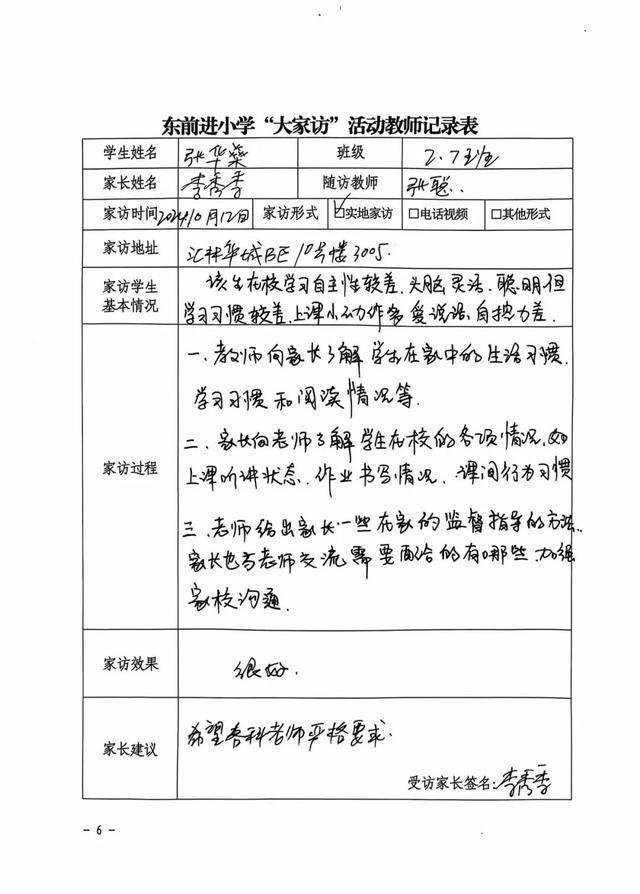 东前进小学“大家访”活动教师记录表
学生姓名 张华燊 班级 2.7班
家长姓名 李秀季 随访教师 张聪
家访时间 2024.10月12日 家访形式 ☑实地家访 □电话视频 □其他形式
家访地址 汇林华城B区10号楼3005.
家访学生 该生在校学习自主性较差.头脑灵活.聪明但
基本情况 学习习惯较差.上课小动作多 爱说话.自控力差.
一.教师向家长了解学生在家中的生活习惯.
学习习惯和阅读情况等.
二.家长向老师了解学生在校的各项情况.如
家访过程 上课听讲状态.作业书写情况.课间行为习惯
三.老师给出家长一些在家的监督指导的方法.
家长也与老师交流需要配合的有哪些.加强
家校沟通.
家访效果 很好.
家长建议 希望各科老师严格要求.
受访家长签名:李秀季
- 6 -